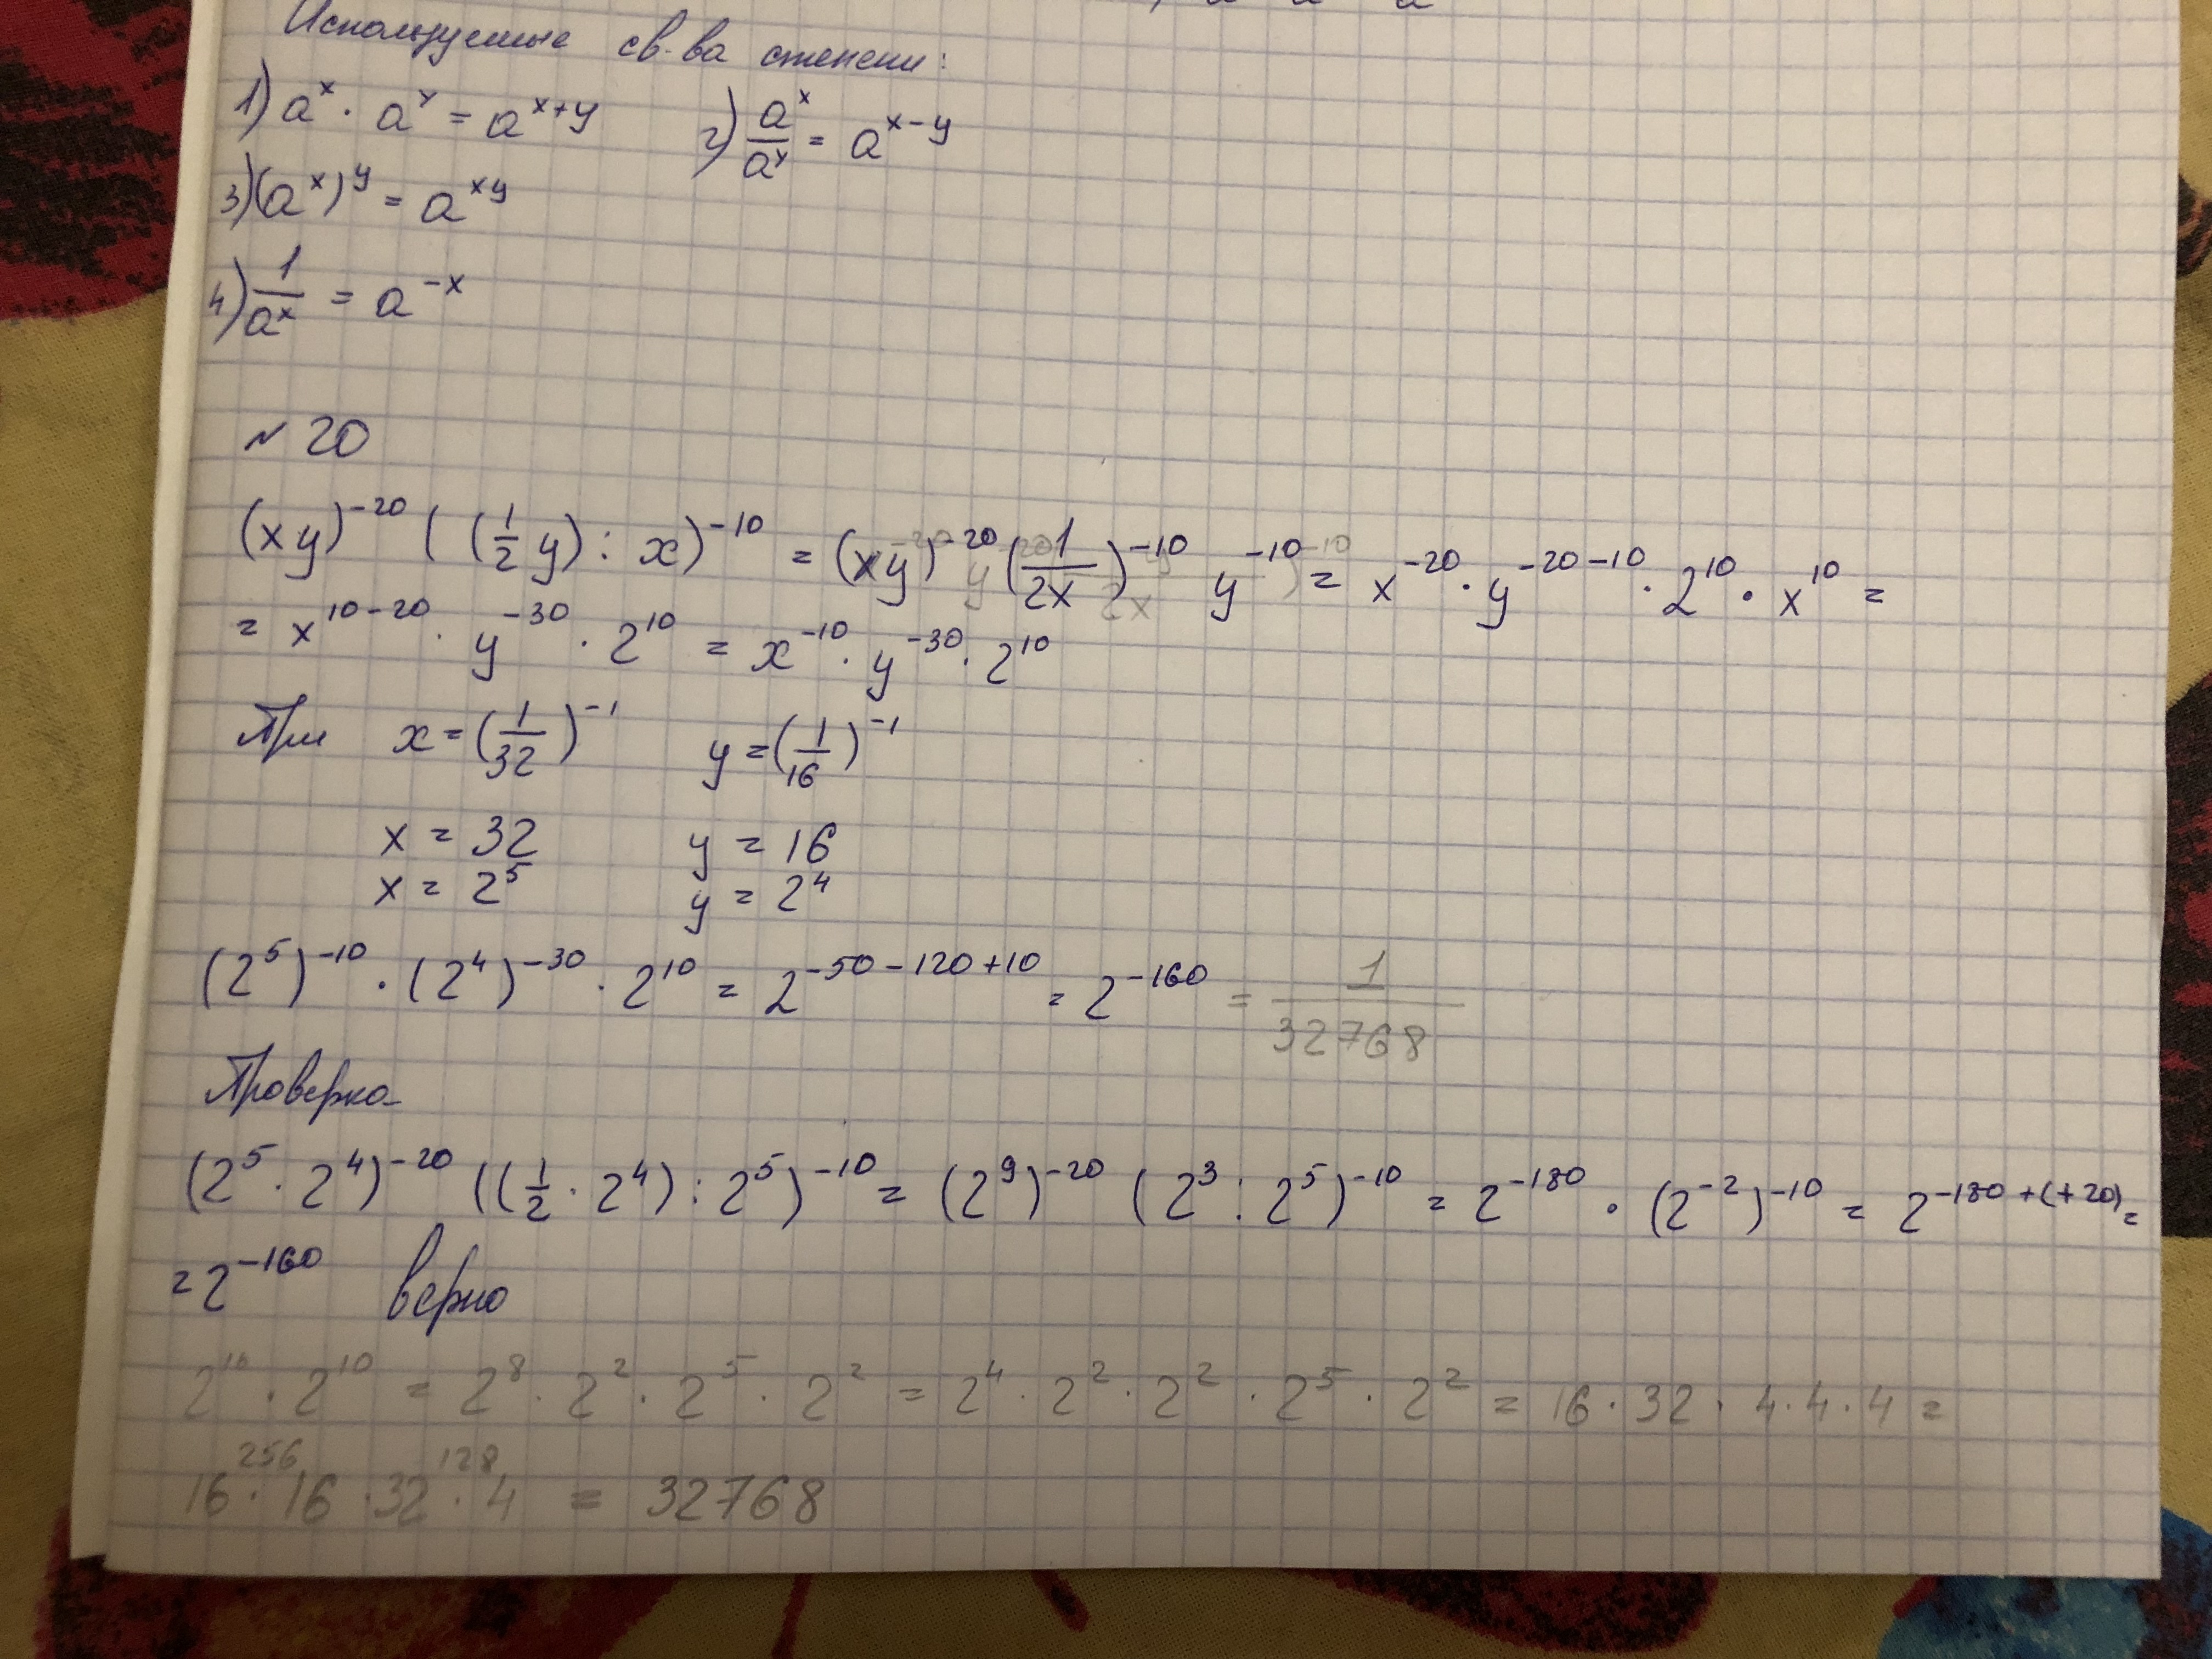 Используемые св-ва степени:
1) a^x · a^y = a^{x+y} 2) a^x/a^y = a^{x-y}
3) (a^x)^y = a^{xy}
4) 1/a^x = a^{-x}
№ 20
(xy)^{-20} ((1/2 y) : x)^{-10} = (xy)^{-20} (1/2x)^{-10} y^{-10} = x^{-20} · y^{-20-10} · 2^{10} · x^{10} =
= x^{10-20} · y^{-30} · 2^{10} = x^{-10} · y^{-30} · 2^{10}
При x = (1/32)^{-1} y = (1/16)^{-1}
x = 32 y = 16
x = 2^5 y = 2^4
(2^5)^{-10} · (2^4)^{-30} · 2^{10} = 2^{-50-120+10} = 2^{-160} = 1/32768
Проверка
(2^5 · 2^4)^{-20} ((1/2 · 2^4) : 2^5)^{-10} = (2^9)^{-20} (2^3 : 2^5)^{-10} = 2^{-180} · (2^{-2})^{-10} = 2^{-180+(+20)} =
= 2^{-160} верно
2^{16} · 2^{10} = 2^8 · 2^2 · 2^5 · 2^2 = 2^4 · 2^2 · 2^2 · 2^5 · 2^2 = 16 · 32 · 4 · 4 · 4 =
256 128
16 · 16 · 32 · 4 = 32768